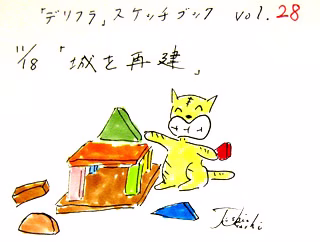 「デリフラ」スケッチブック vol.28
11/18「城を再建」